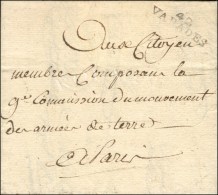 40
VAUD
Aux Citoyen
membres Composant la
9e Commission du mouvement
des armées de terre
a Paris